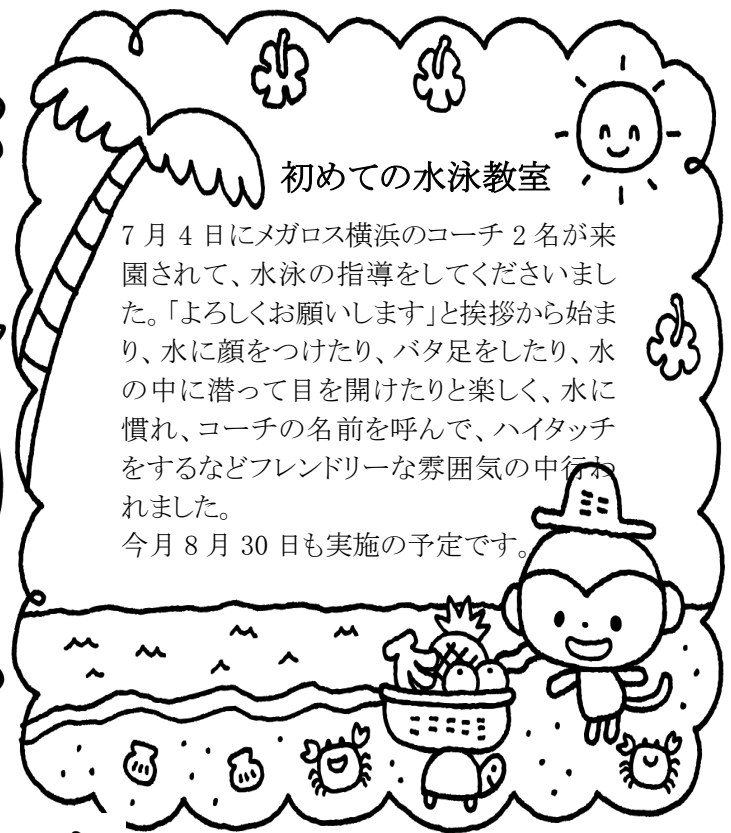 初めての水泳教室
7 月 4 日にメガロス横浜のコーチ 2 名が来
園されて、水泳の指導をしてくださいまし
た。「よろしくお願いします」と挨拶から始ま
り、水に顔をつけたり、バタ足をしたり、水
の中に潜って目を開けたりと楽しく、水に
慣れ、コーチの名前を呼んで、ハイタッチ
をするなどフレンドリーな雰囲気の中行わ
れました。
今月 8 月 30 日も実施の予定です。